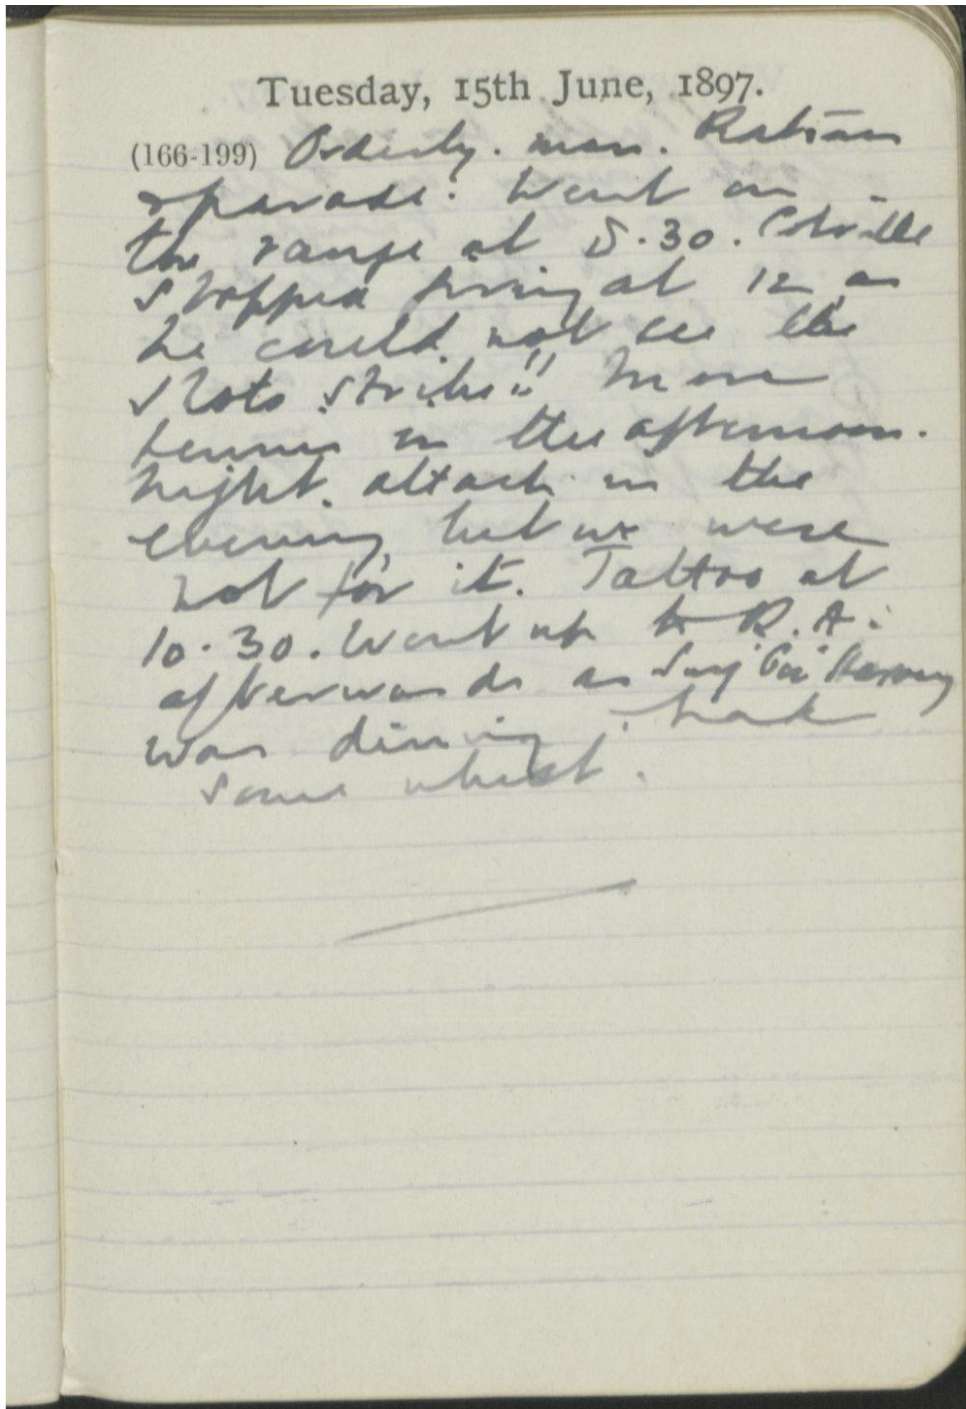 Tuesday, 15th June, 1897.
(166-199) Orderly. man. Rations
& parade. Went on
the range at 8.30. Colville
stopped firing at 12 as
he could not see the
shots strike!! More
tennis in the afternoon.
Night attack in the
evening, but we were
not for it. Tattoo at
10.30. Went up to R.A.
afterwards as
was dining. Had
some whist.